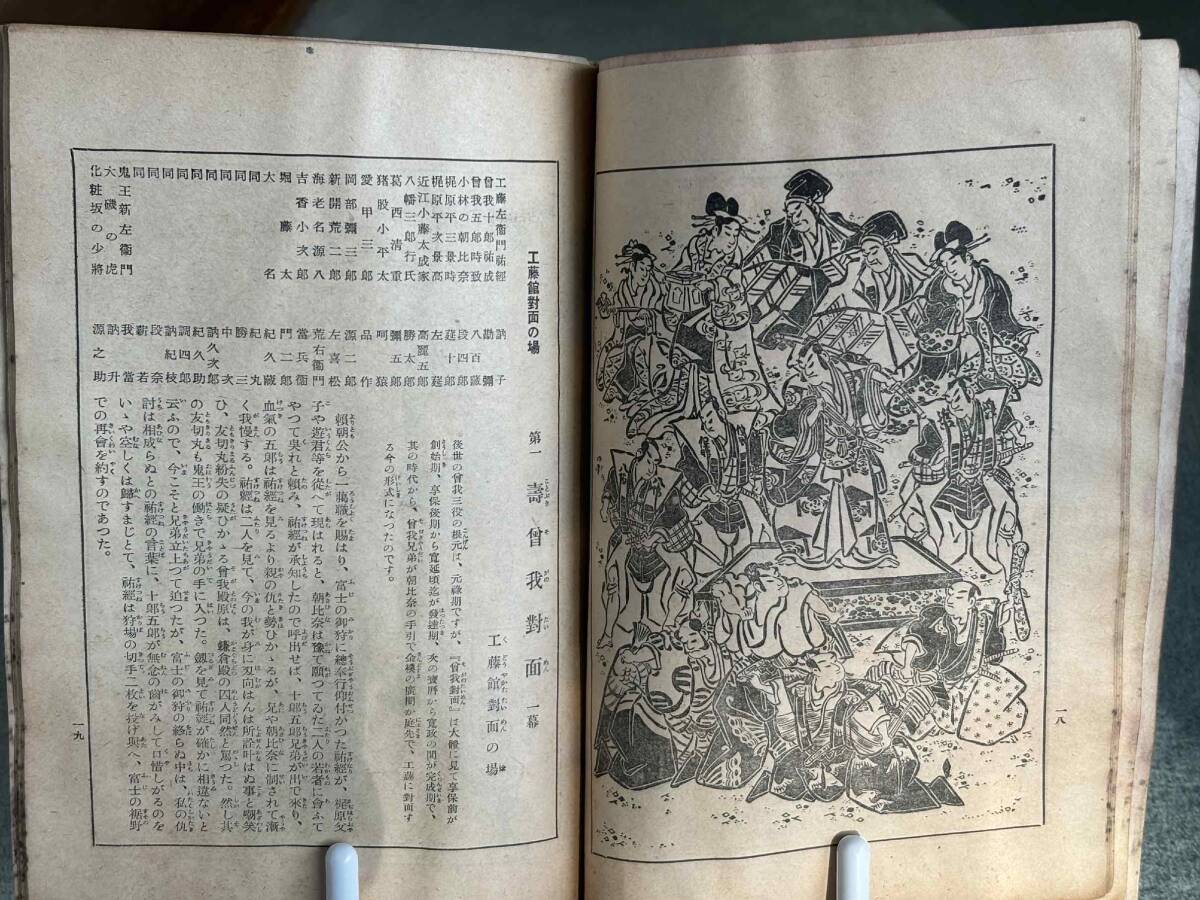 一八
第一 壽曾我對面 一幕
工藤館對面の場
後世の曾我三役の根元は、元祿期ですが、『曾我對面』は大體に見て享保前が
創始期、享保後期から寬延頃迄が發達期、次の寶曆から寬政の間が完成期で、
其の時代から、曾我兄弟が朝比奈の手引で金襖の廣間か庭先で、工藤に對面す
る今の形式になつたのです。
賴朝公から一﨟職を賜はり、富士の御狩に總奉行仰付かつた祐經が、梶原父
子や遊君等を從へて現はれると、朝比奈は豫て願つてゐた二人の若者に會ふて
やつて吳れと賴み、祐經が承知したので呼出せば、十郎五郎兄弟が出で來り、
血氣の五郎は祐經を見るより親の仇と勢ひかゝるが、兄や朝比奈に制されて漸
く我慢する。祐經は二人を見て、今の我が身に刃向はんは所詮叶はぬ事と嘲笑
ひ、友切丸紛失の疑ひかゝる曾我殿原は、鎌倉殿の四人同然と罵つた。然し其
の友切丸も鬼王の働きで兄弟の手に入つた。劔を見て祐經が確かに相違ないと
云ふので、今こそと兄弟立上つて迫つたが、富士の御狩の終らぬ中は、私の仇
討は相成らぬとの祐經の言葉に、十郎五郎が無念の齒がみして口惜しがるのを
いゝや空しくは歸すまじとて、祐經は狩場の切手二枚を投げ與へ、富士の裾野
での再會を約すのであつた。
工藤館對面の場
工藤左衞門祐經 訥子
曾我十郎祐成 勘彌
曾我五郎時致 八百藏
小林の朝比奈 段四郎
梶原平三景時 莚十郎
梶原平次景高 左莚
近江小藤太成家 高麗五郎
八幡三郎行氏 勝太郎
葛西淸重 彌五郎
猪股小平太 呵猿
愛甲三郎 品作
岡部彌三郎 源二郎
新開荒二郎 左喜松
海老名源八 荒右衞門
吉香小次郎 當兵衞
堀藤太 門二郎
大名 紀久藏
同 紀丸
同 勝三
同 中次
同 訥久次郎
同 紀久助
同 調四郎
同 訥紀枝
同 段奈
同 薪若
鬼王新左衞門 我當
大磯の虎 訥升
化粧坂の少將 源之助
一九